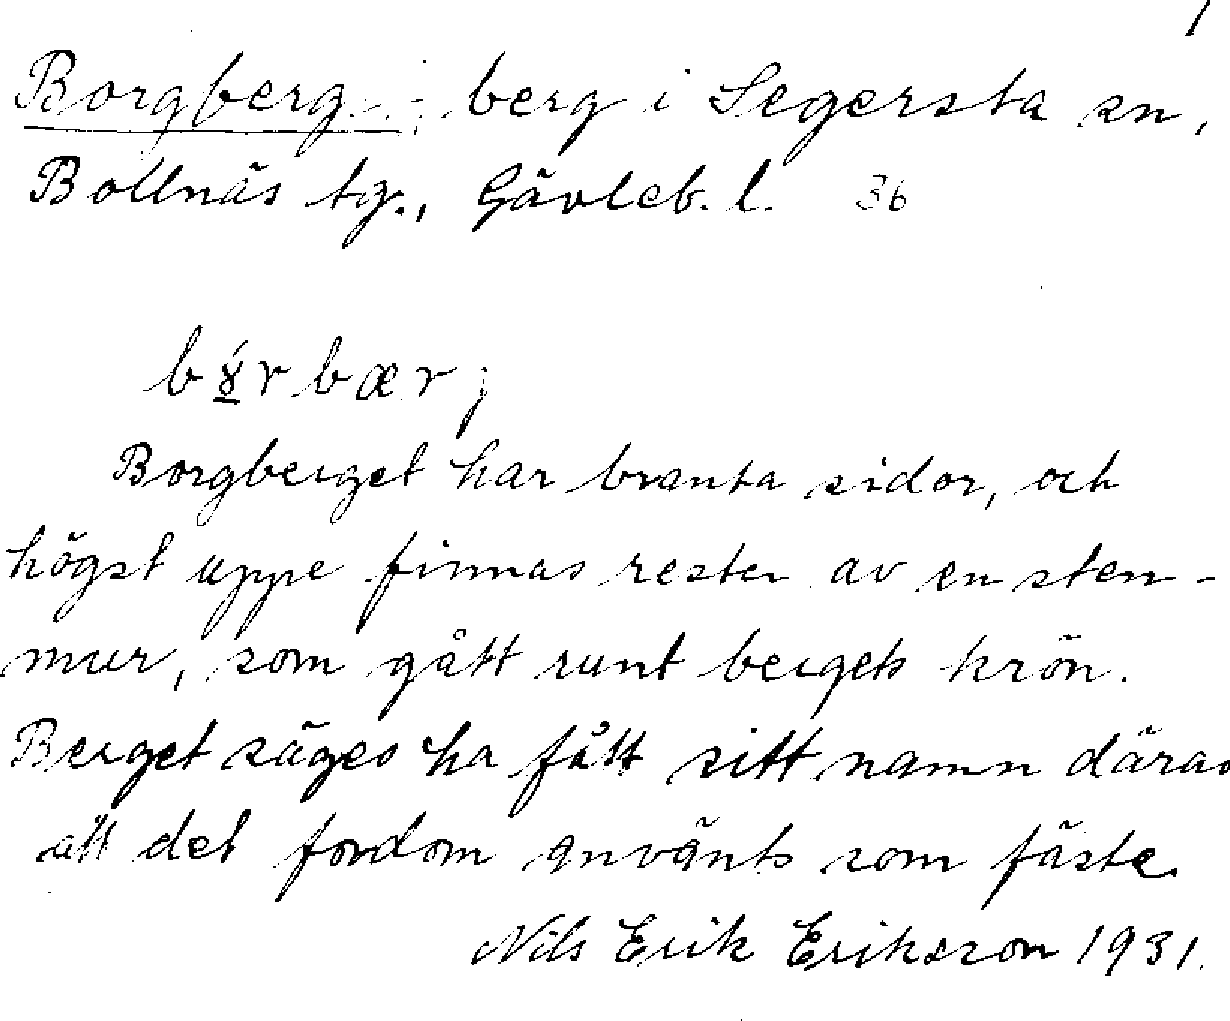 1
Borgberg, berg i Segersta sn,
Bollnäs tg., Gävleb. l. 36
bɤ́rbær;
Borgberget har branta sidor, och
högst uppe finnas rester av en sten-
mur, som gått runt bergets krön.
Berget säges ha fått sitt namn därav
att det fordom använts som fäste.
Nils Erik Eriksson 1931.